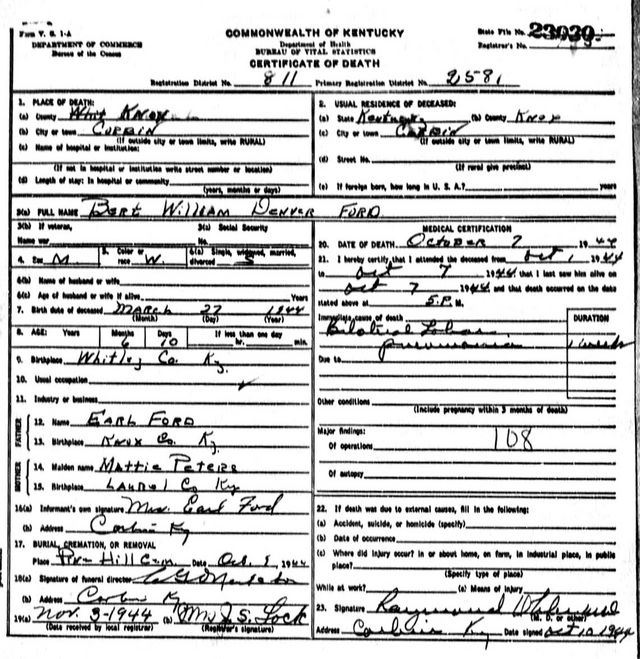 Form V. S. 1-A
DEPARTMENT OF COMMERCE
Bureau of the Census
COMMONWEALTH OF KENTUCKY
Department of Health
BUREAU OF VITAL STATISTICS
CERTIFICATE OF DEATH
State File No. 23939
Registrar's No.
Registration District No. 811 Primary Registration District No. 2581
1. PLACE OF DEATH:
(a) County Whit Knox
(b) City or town CORBIN
(If outside city or town limits, write RURAL)
(c) Name of hospital or institution:
(If not in hospital or institution write street number or location)
(d) Length of stay: In hospital or community
(years, months or days)
2. USUAL RESIDENCE OF DECEASED:
(a) State Kentucky (b) County KNOX
(c) City or town CORBIN
(If outside city or town limits, write RURAL)
(d) Street No.
(If rural give precinct)
(e) If foreign born, how long in U. S. A.? years
3(a) FULL NAME BERT WILLIAM DENVER FORD
3(b) If veteran, Name war
3(c) Social Security No.
4. Sex M. 5. Color or race W. 6(a) Single, widowed, married, divorced S
6(b) Name of husband or wife
6(c) Age of husband or wife if alive Years
7. Birth date of deceased MARCH 27 1944
(Month) (Day) (Year)
8. AGE: Years Months Days If less than one day
6 10 hr. min.
9. Birthplace Whitley Co. Ky.
10. Usual occupation
11. Industry or business
FATHER
12. Name EARL FORD
13. Birthplace KNOX Co. Ky
MOTHER
14. Maiden name MATTIE PETERS
15. Birthplace LAUREL Co Ky
16(a) Informant's own signature Mrs. Earl Ford
(b) Address Corbin Ky
17. BURIAL, CREMATION, OR REMOVAL
Place Pine Hill Cem. Date Oct. 1944
18(a) Signature of funeral director
(b) Address Corbin Ky
19(a) Nov. 3-1944 (b) Mrs J. S. Lock
(Date received by local registrar) (Registrar's signature)
MEDICAL CERTIFICATION
20. DATE OF DEATH October 7 1944
21. I hereby certify that I attended the deceased from Oct 1, 1944
to Oct 7 1944 that I last saw him alive on
Oct 7 1944 and that death occurred on the date
stated above at 5 P. M.
Immediate cause of death
Bilateral Lobar
pneumonia
DURATION
1 week
Due to
Other conditions
(Include pregnancy within 3 months of death)
Major findings:
Of operations 108
Of autopsy
22. If death was due to external causes, fill in the following:
(a) Accident, suicide, or homicide (specify)
(b) Date of occurrence
(c) Where did injury occur? In or about home, on farm, in industrial place, in public
place?
(Specify type of place)
While at work? (e) Means of injury
23. Signature Raymond
(M. D. or other)
Address Corbin Ky Date signed Oct 10 1944